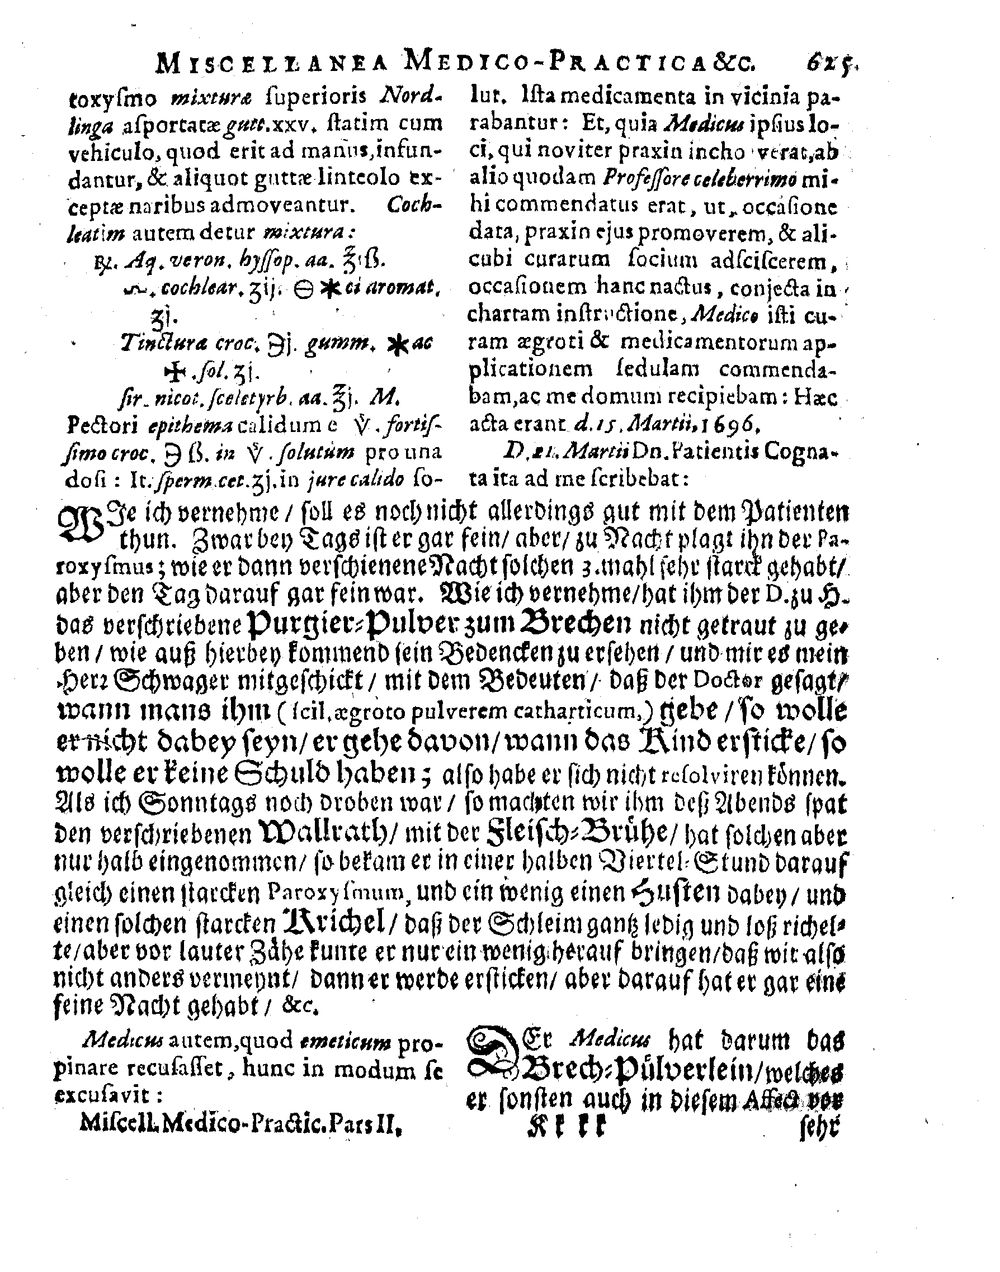 MISCELLANEA MEDICO-PRACTICA &c. 625.
toxyſmo mixturæ ſuperioris Nord-
linga aſportatæ gutt. xxv. ſtatim cum
vehiculo, quod erit ad manus, infun-
dantur, & aliquot guttæ linteolo ex-
ceptæ naribus admoveantur. Coch-
leatim autem detur mixtura:
℞. Aq. veron. hyſſop. aa. ℥iß.
cochlear. ʒij. ⊖ ✱ci aromat.
ʒj.
Tincturæ croc. ℈j. gumm. ✱ac
✠. ſol. ʒj.
ſir. nicot. ſceletyrb. aa. ℥j. M.
Pectori epithema calidum e V̊. fortiſ-
ſimo croc. ℈ß. in V̊. ſolutum pro una
doſi: It. ſperm. cet. ʒj. in jure calido ſo-
lut. Iſta medicamenta in vicinia pa-
rabantur: Et, quia Medicus ipſius lo-
ci, qui noviter praxin inchoverat, ab
alio quodam Profeſſore celeberrimo mi-
hi commendatus erat, ut, occaſione
data, praxin ejus promoverem, & ali-
cubi curarum ſocium adſciſcerem,
occaſionem hanc nactus, conjecta in
chartam inſtructione, Medico iſti cu-
ram ægroti & medicamentorum ap-
plicationem ſedulam commenda-
bam, ac me domum recipiebam: Hæc
acta erant d. 15. Martii, 1696.
D. 21. Martii Dn. Patientis Cogna-
ta ita ad me ſcribebat:
WJe ich vernehme / ſoll es noch nicht allerdings gut mit dem Patienten
thun. Zwar bey Tags iſt er gar fein / aber / zu Nacht plagt ihn der Pa-
roxyſmus; wie er dann verſchienene Nacht ſolchen 3. mahl ſehr ſtarck gehabt /
aber den Tag darauf gar fein war. Wie ich vernehme / hat ihm der D. zu H.
das verſchriebene Purgier-Pulver zum Brechen nicht getraut zu ge-
ben / wie auß hierbey kommend ſein Bedencken zu erſehen / und mir es mein
Herr Schwager mitgeſchickt / mit dem Bedeuten / daß der Doctor geſagt /
wann mans ihm (ſcil. ægroto pulverem catharticum,) gebe / ſo wolle
er nicht dabey ſeyn / er gehe davon / wann das Kind erſticke / ſo
wolle er keine Schuld haben; alſo habe er ſich nicht reſolviren können.
Als ich Sonntags noch droben war / ſo machten wir ihm deß Abends ſpat
den verſchriebenen Wallrath / mit der Fleiſch-Brühe / hat ſolchen aber
nur halb eingenommen / ſo bekam er in einer halben Viertel-Stund darauf
gleich einen ſtarcken Paroxyſmum, und ein wenig einen Huſten dabey / und
einen ſolchen ſtarcken Krichel / daß der Schleim gantz ledig und loß richel-
te / aber vor lauter Zähe kunte er nur ein wenig herauf bringen / daß wir alſo
nicht anders vermeynt / dann er werde erſticken / aber darauf hat er gar eine
feine Nacht gehabt / &c.
Medicus autem, quod emeticum pro-
pinare recuſaſſet, hunc in modum ſe
excuſavit:
DEr Medicus hat darum das
Brech-Pülverlein / welches
er ſonſten auch in dieſem Affect vor
Miſcell. Medico-Practic. Pars II. K k k k ſehr